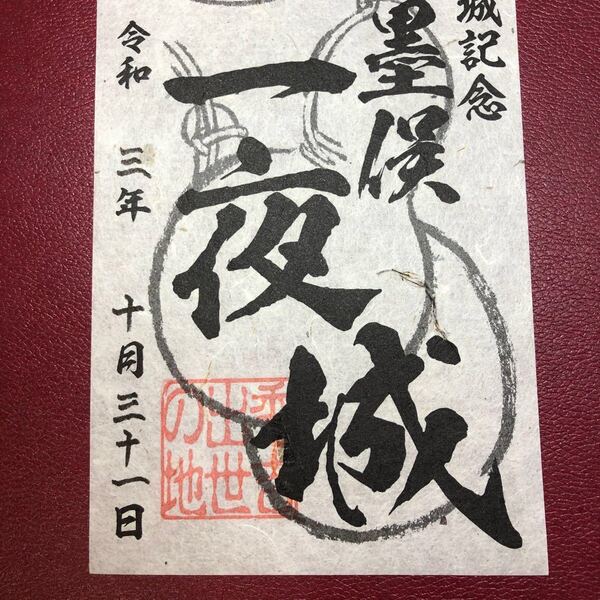 城記念
墨俣
一夜城
令和 三年 十月三十一日
秀吉
出世
の地